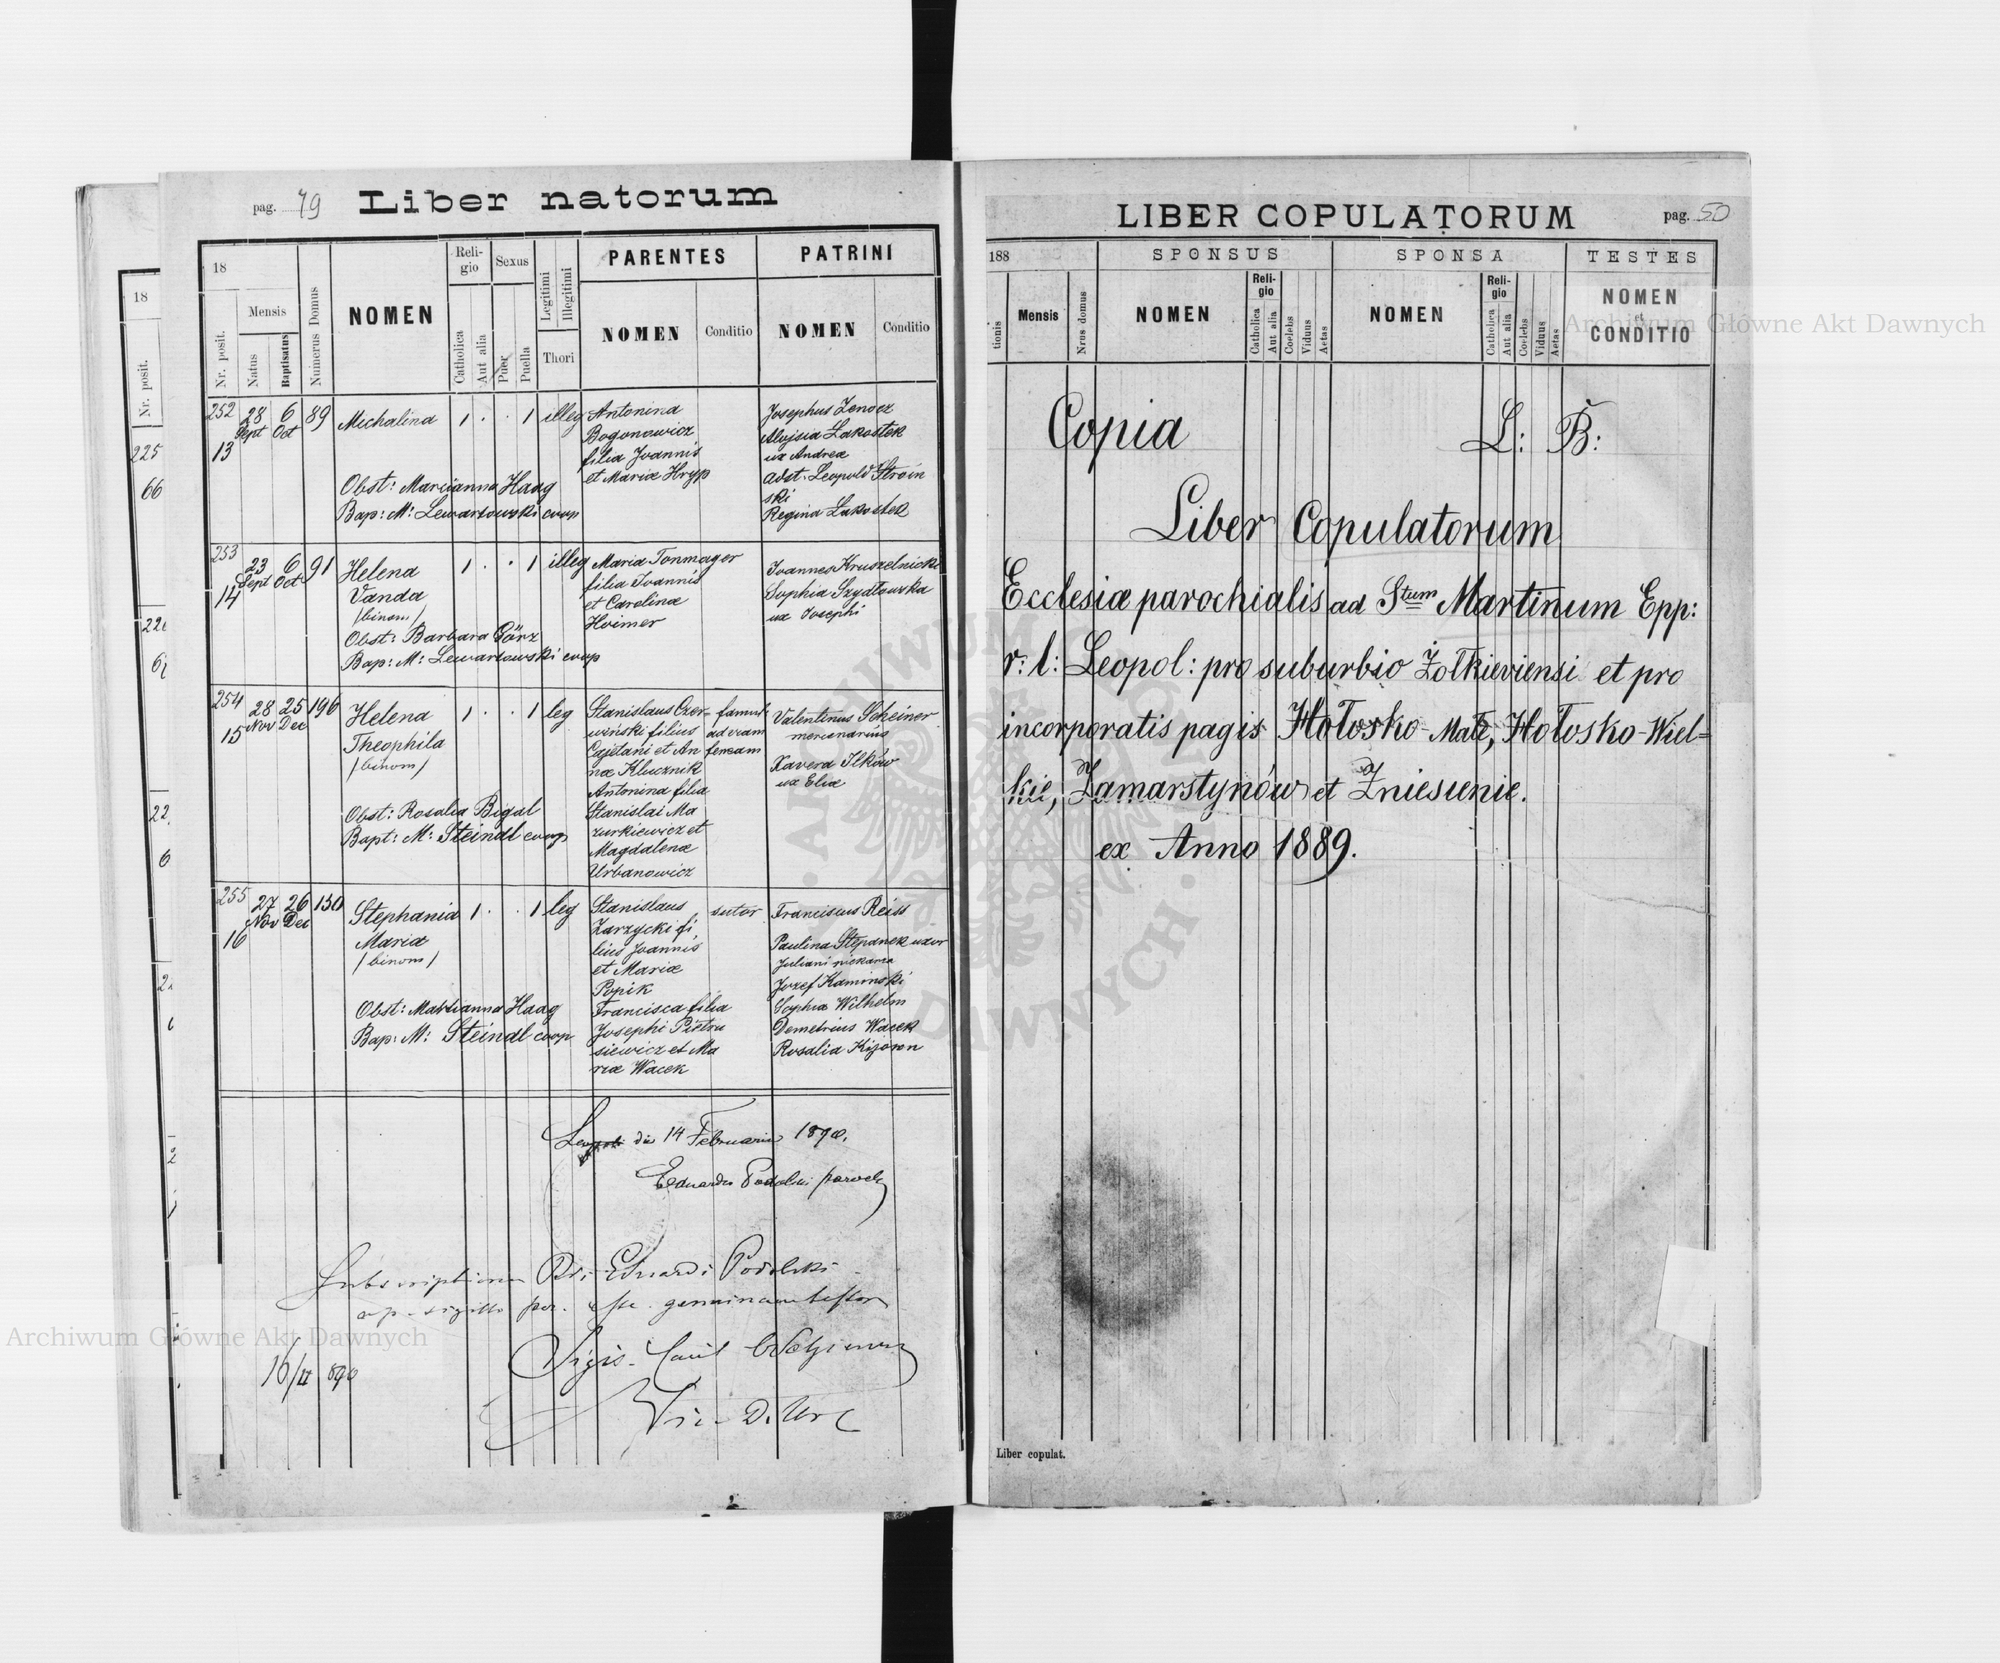 pag. 49
Liber natorum
18
Nr. posit.
Mensis
Natus
Baptisatus
Numerus Domus
NOMEN
Reli-
gio
Catholica
Aut alia
Sexus
Puer
Puella
Legitimi
Illegitimi
Thori
PARENTES
NOMEN
Conditio
PATRINI
NOMEN
Conditio
252
13
28
Sept
6
Oct
89
Michalina
1 . . 1
illeg
Antonina
Bogonowicz
filia Joannis
et Mariæ Hryp
Josephus
Aloisia Lakostek
ux Andreæ
adst. Leopold Stroin
ski
Regina Lakostek
Obst: Marcianna Haag
Bap: M: Lewartowski coop
253
14
23
Sept
6
Oct
91
Helena
Vanda
/binom/
1 . . 1
illeg
Maria Tonmager
filia Joannis
et Carolinæ
Heimer
Joannes Kruszelnicki
Sophia Szydłowska
ux Josephi
Obst: Barbara Görz
Bap: M: Lewartowski coop
254
15
28
Nov
25
Dec
196
Helena
Theophila
/binom/
1 . . 1
leg
Stanislaus Czer-
wiński filius
Cajetani et An
næ Klucznik
Antonina filia
Stanislai Ma
zurkiewicz et
Magdalenæ
Urbanowicz
famul:
ad viam
ferream
Valentinus Scheiner
mercenarius
Xavera Ilków
ux Eliæ
Obst: Rosalia Bigal
Bapt: M: Steindl coop
255
16
27
Nov
26
Dec
150
Stephania
Maria
/binom/
1 . . 1
leg
Stanislaus
Zarzycki fi
lius Joannis
et Mariæ
Popik
Francisca filia
Josephi Pietru
siewicz et Ma
riæ Wacek
sutor
Franciscus Reiss
Paulina Stepanek uxor
Juliani piekarza
Jozef Kaminski
Sophia Wilhelm
Demetrius Wacek
Rosalia
Obst: Marcianna Haag
Bap: M: Steindl coop
Leopoli die 14 Februarii 1890.
Eduardus Podolski paroch
Subscriptionem Eduardi Podolski
sigillo genuinam testor
16/II 890
18
Nr. posit.
225
66
LIBER COPULATORUM
pag. 50
188
tionis
Mensis
Nrus domus
SPONSUS
NOMEN
Reli-
gio
Catholica
Aut alia
Coelebs
Viduus
Aetas
SPONSA
NOMEN
Reli-
gio
Catholica
Aut alia
Coelebs
Viduus
Aetas
TESTES
NOMEN
et
CONDITIO
Copia L: B:
Liber Copulatorum
Ecclesiæ parochialis ad Stum Martinum Epp:
r: l: Leopol: pro suburbio Żołkieviensi et pro
incorporatis pagis Hołosko-Małe, Hołosko-Wiel=
kie, Zamarstynów et Zniesienie.
ex Anno 1889.
Liber copulat.
Archiwum Główne Akt Dawnych
Archiwum Główne Akt Dawnych
ARCHIWUM GŁÓWNE AKT DAWNYCH